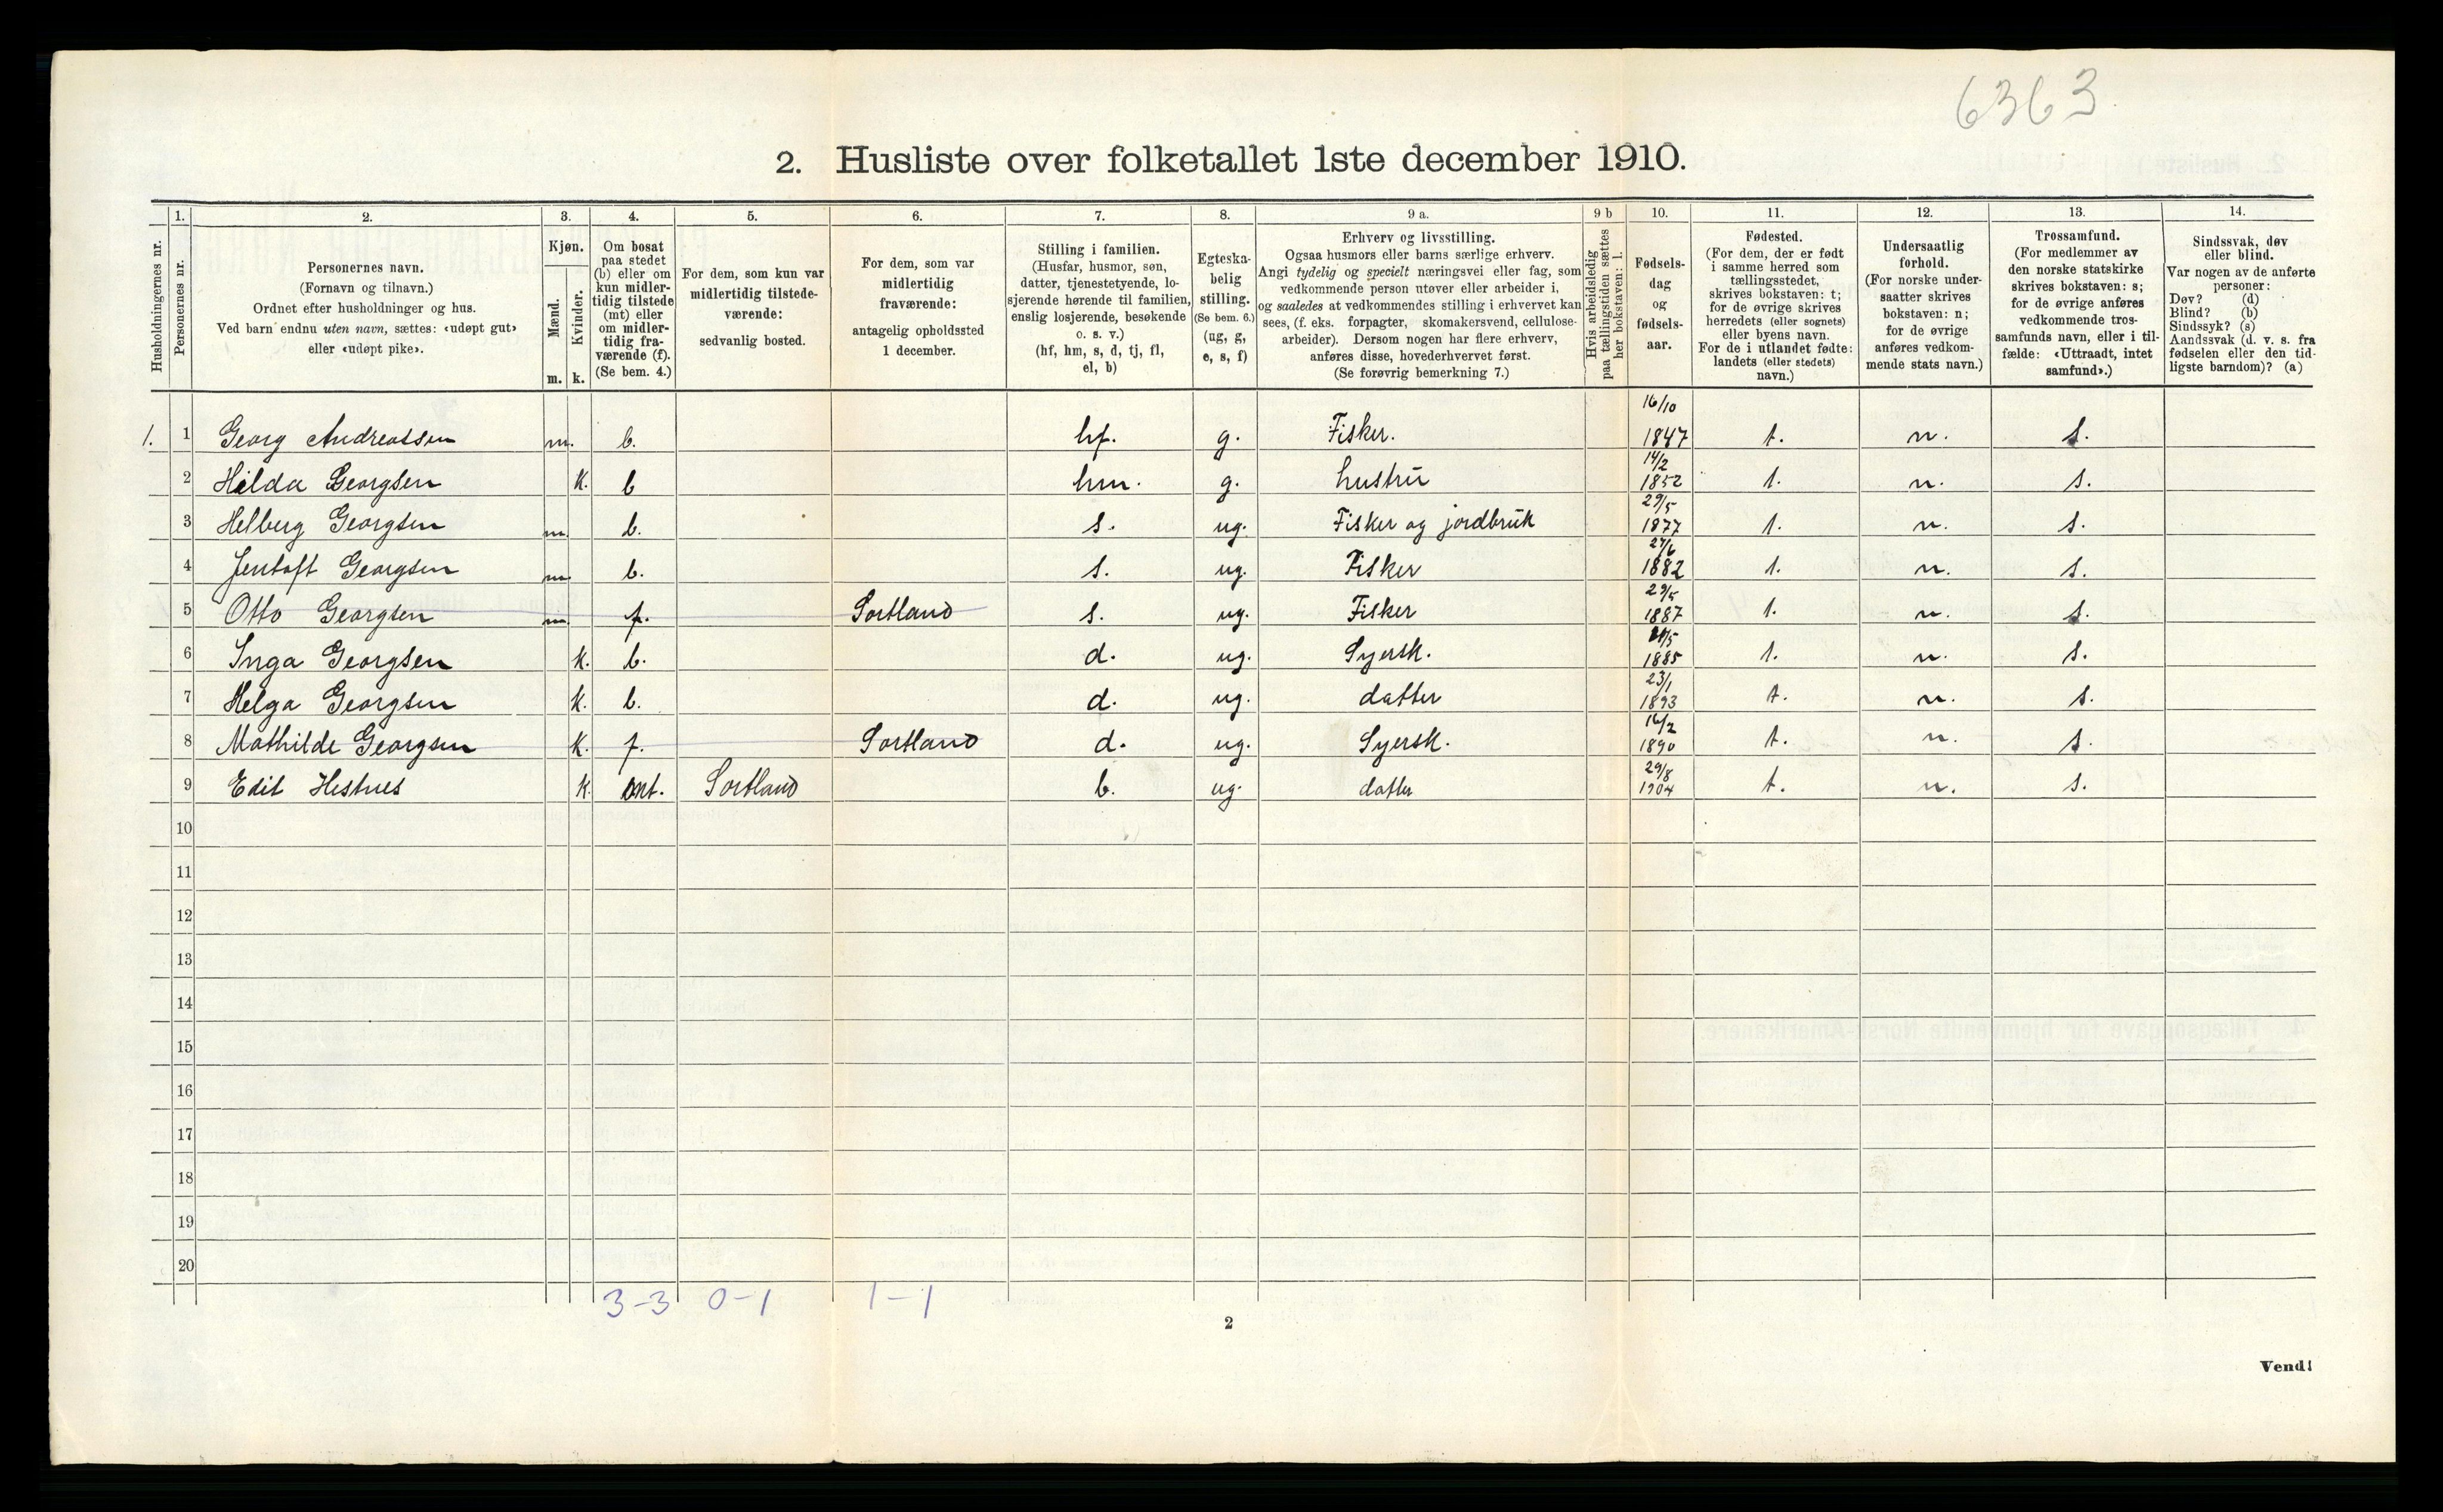 6363
2. Husliste over folketallet 1ste december 1910.
1. 2. 3. 4. 5. 6. 7. 8. 9 a. 9 b 10. 11. 12. 13. 14.
Husholdningernes nr.
Personernes nr.
Personernes navn.
(Fornavn og tilnavn.)
Ordnet efter husholdninger og hus.
Ved barn endnu uten navn, sættes: «udøpt gut»
eller «udøpt pike».
Kjøn.
Mænd.
Kvinder.
m. k.
Om bosat
paa stedet
(b) eller om
kun midler-
tidig tilstede
(mt) eller
om midler-
tidig fra-
værende (f).
(Se bem. 4.)
For dem, som kun var
midlertidig tilstede-
værende:
sedvanlig bosted.
For dem, som var
midlertidig
fraværende:
antagelig opholdssted
1 december.
Stilling i familien.
(Husfar, husmor, søn,
datter, tjenestetyende, lo-
sjerende hørende til familien,
enslig losjerende, besøkende
o. s. v.)
(hf, hm, s, d, tj, fl,
el, b)
Egteska-
belig
stilling.
(Se bem. 6.)
(ug, g,
e, s, f)
Erhverv og livsstilling.
Ogsaa husmors eller barns særlige erhverv.
Angi tydelig og specielt næringsvei eller fag, som
vedkommende person utøver eller arbeider i,
og saaledes at vedkommendes stilling i erhvervet kan
sees, (f. eks. forpagter, skomakersvend, cellulose-
arbeider). Dersom nogen har flere erhverv,
anføres disse, hovederhvervet først.
(Se forøvrig bemerkning 7.)
Hvis arbeidsledig
paa tællingstiden sættes
her bokstaven: l.
Fødsels-
dag
og
fødsels-
aar.
Fødested.
(For dem, der er født
i samme herred som
tællingsstedet,
skrives bokstaven: t;
for de øvrige skrives
herredets (eller sognets)
eller byens navn.
For de i utlandet fødte:
landets (eller stedets)
navn.)
Undersaatlig
forhold.
(For norske under-
saatter skrives
bokstaven: n;
for de øvrige
anføres vedkom-
mende stats navn.)
Trossamfund.
(For medlemmer av
den norske statskirke
skrives bokstaven: s;
for de øvrige anføres
vedkommende tros-
samfunds navn, eller i til-
fælde: «Uttraadt, intet
samfund».)
Sindssvak, døv
eller blind.
Var nogen av de anførte
personer:
Døv? (d)
Blind? (b)
Sindssyk? (s)
Aandssvak (d. v. s. fra
fødselen eller den tid-
ligste barndom)? (a)
1. 1 Georg Andreassen m. b. hf. g. Fisker. 16/10 1847 t. n. s.
2 Hilda Georgsen k. b hm. g. hustru 14/2 1852 t. n. s.
3 Helberg Georgsen m. b. s. ug. Fisker og jordbruk 29/5 1877 t. n. s.
4 Jentoft Georgsen m. b. s. ug. Fisker 27/6 1882 t. n. s.
5 Otto Georgsen m. f. Sortland s. ug. Fisker 29/5 1887 t. n. s.
6 Inga Georgsen k. b. d. ug. Syersk. 1885 t. n. s.
7 Helga Georgsen k. b. d. ug. datter 23/1 1893 t. n. s.
8 Mathilde Georgsen k. f. Sortland d. ug. Syersk. 16/2 1890 t. n. s.
9 Edit Hestnes k. mt. Sortland b. ug. datter 29/8 1904 t. n. s.
10
11
12
13
14
15
16
17
18
19
20
3-3 0-1 1-1
2
Vend!